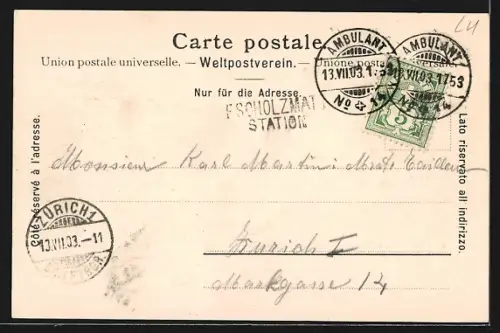 L4
Carte postale.
Union postale universelle. — Weltpostverein. — Unione postale universale.
Nur für die Adresse.
ESCHOLZMAT
STATION
AMBULANT
13.VII.03.17 53
No 14
AMBULANT
13.VII.03.17 53
No 14
5
Côté réservé à l'adresse.
Lato riservato all indirizzo.
Monsieur Karl Martini Mstr. Tailleur
Zurich I
Markgasse 14
ZÜRICH 1
13.VII.03.–11